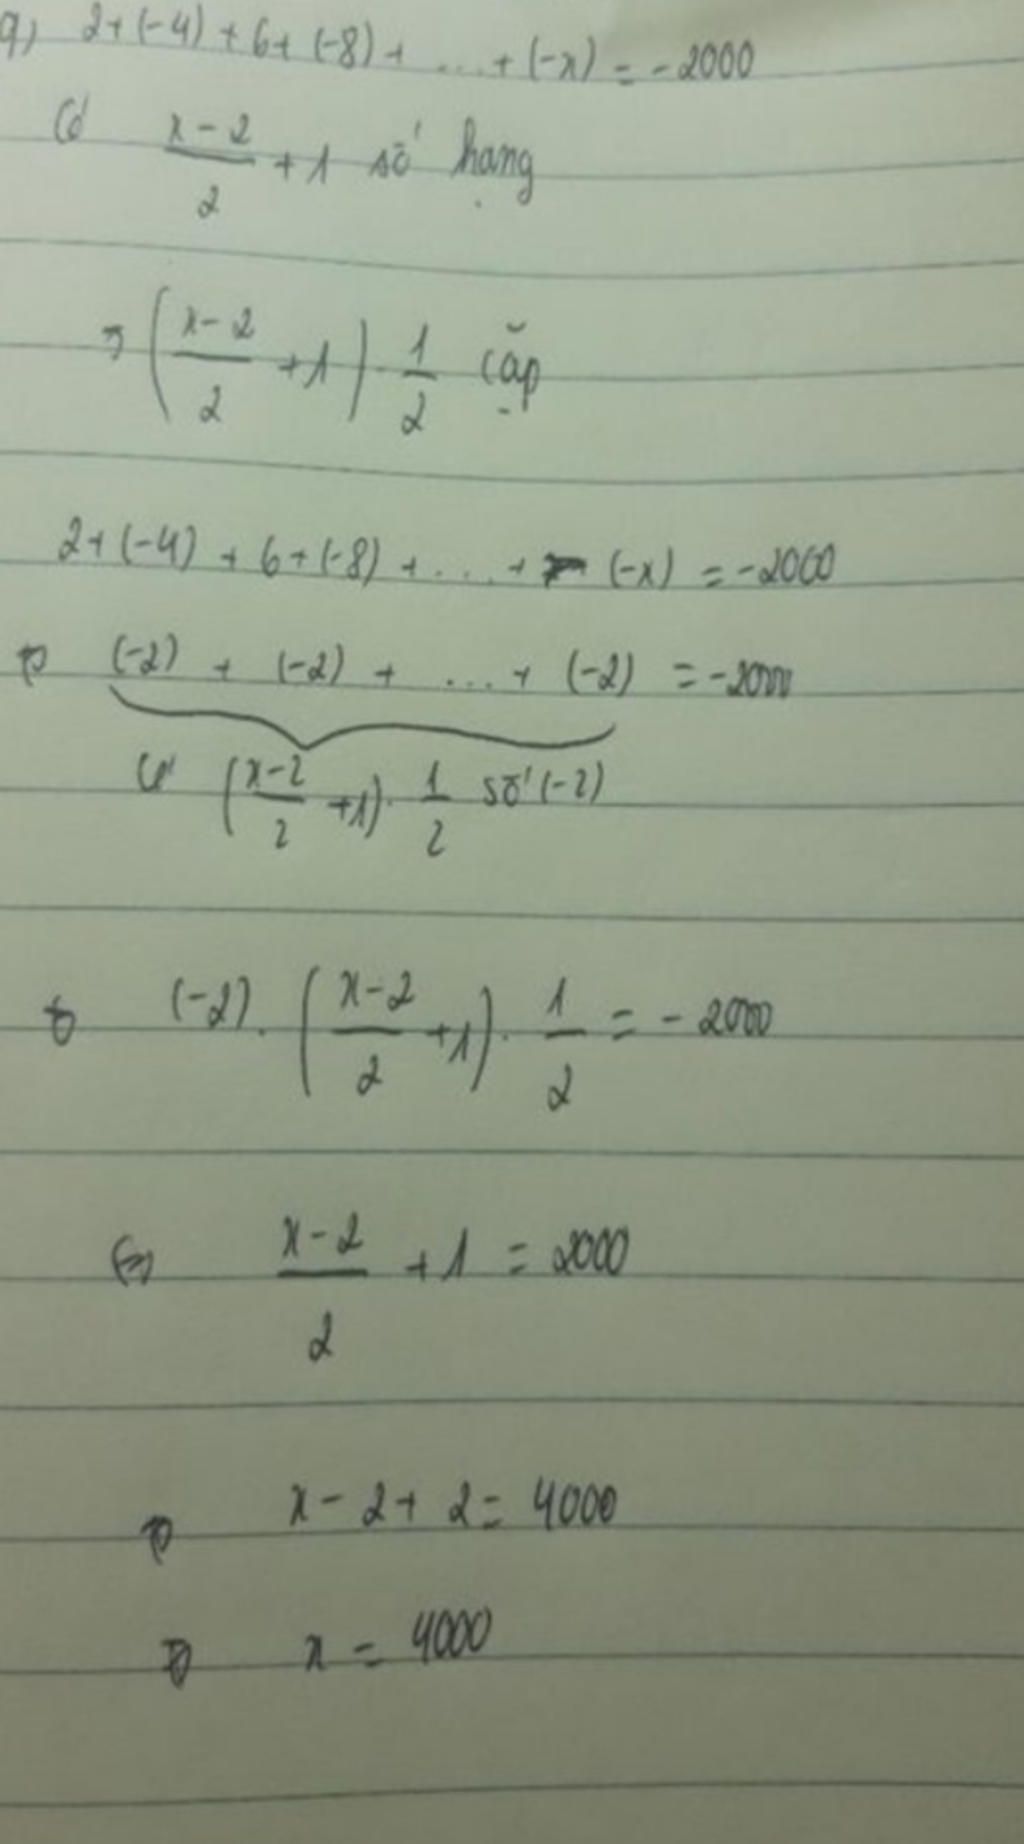 a) 2+(-4)+6+(-8)+ ... +(-x) = -2000
Có (x-2)/2 + 1 số hạng
=> ((x-2)/2 + 1) . 1/2 cặp
2+(-4)+6+(-8)+ ... + (-x) = -2000
<=> (-2) + (-2) + ... + (-2) = -2000
Có ((x-2)/2 + 1) . 1/2 số (-2)
<=> (-2) . ((x-2)/2 + 1) . 1/2 = -2000
<=> (x-2)/2 + 1 = 2000
<=> x-2+2 = 4000
<=> x = 4000